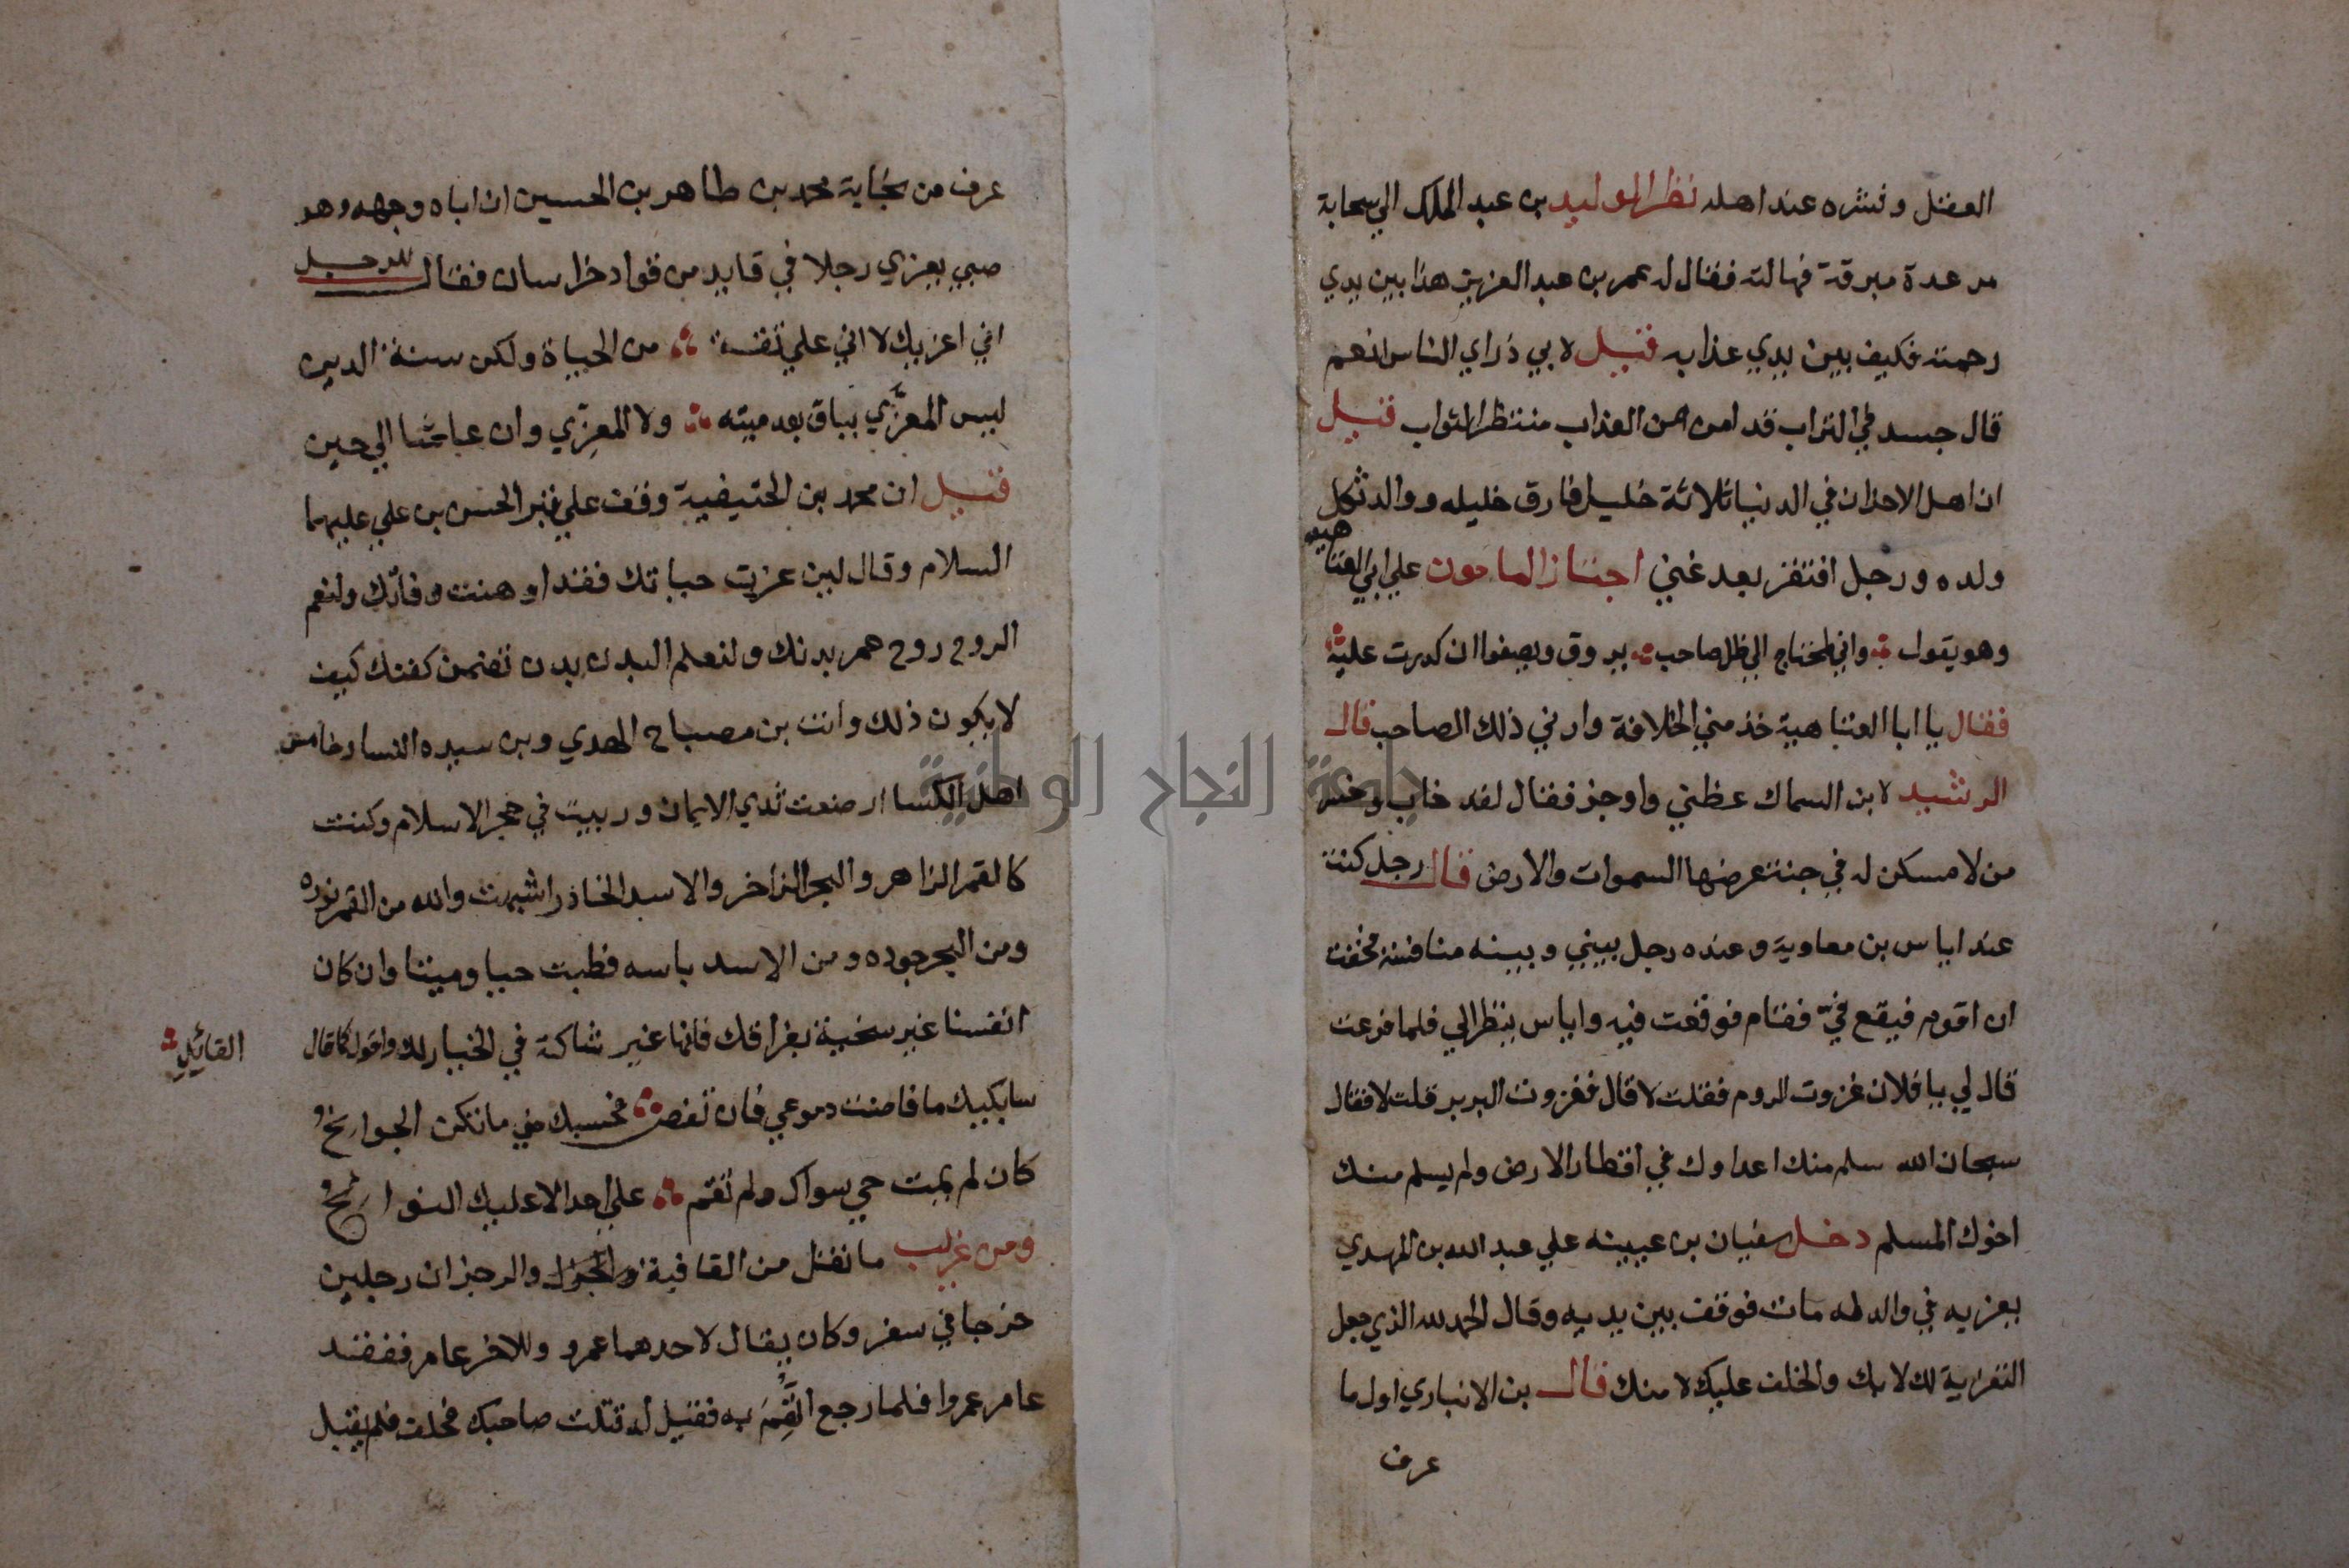 العقل وقشره عند اهله نظر الوليد بن عبد الملك الي سحابة
مرعدة مبرقة فهالته فقال له عمر بن عبد العزيز هذا بين يدي
رحمته فكيف بين يدي عذابه قيل لابي ذر اي الناس انعم
قال جسد في التراب قد امن من العذاب منتظر الثواب قيل
ان اهل الاحزان في الدنيا ثلاثة خليل فارق خليله ووالد ثكل
ولده ورجل افتقر بعد غني اجتاز المامون علي ابي العتاهيه
وهو يقول واني لمحتاج الي ظل صاحب يروق ويصفوا ان كدرت عليه
فقال يا ابا العتاهية خذ مني الخلافة وارني ذلك الصاحب قال
الرشيد لابن السماك عظني واوجز فقال لقد خاب وخسر
من لا مسكن له في جنة عرضها السموات والارض قال رجل كنت
عند اياس بن معاوية وعنده رجل بيني وبينه منافسة فخفت
ان اقوم فيقع فيّ فقام فوقعت فيه واياس ينظر الي فلما فرغت
قال لي يا فلان غزوت الروم فقلت لا قال فغزوت البربر قلت لا فقال
سبحان الله سلم منك اعداوك في اقطار الارض ولم يسلم منك
اخوك المسلم دخل سفيان بن عيينه علي عبد الله بن المهدي
يعزيه في والد له مات فوقف بين يديه وقال الحمد لله الذي جعل
التعزية لك لا بك والخلف عليك لا منك قال بن الانباري اول ما
عرف
عرف من نجابة محمد بن طاهر بن الحسين ان اباه وجهه وهو
صبي يعزي رجلا في قايد من قواد خراسان فقال للرجل
اني اعزيك لا اني علي ثقة من الحياة ولكن سنة الدين
ليس المعزَّي بباق بعد ميته ولا المعزِّي وان عاشا الي حين
قيل ان محمد بن الحنيفية وقف علي قبر الحسن بن علي عليهما
السلام وقال لين عزت حياتك فقد اوهنت وفاتك ولنعم
الروح روح همر بدنك ولنعلم البدن بدن تضمن كفنك كيف
لا يكون ذلك وانت بن مصباح الهدي وبن سيده النسا وخامس
اهل الكسا ارضعت ثدي الايمان وربيت في حجر الاسلام وكنت
كالقمر الزاهر والبحر الزاخر والاسد الخاذر اشبهت والله من القمر نوره
ومن البحر جوده ومن الاسد باسه فطبت حيا وميتا وان كان
انفسنا غير سخية بفراقك فانها غير شاكة في الخيار لك واقول كما قال
القائل
سابكيك ما فاضت دموعي فان تغض فحسبك مني ما تكن الجوارخ
كان لم يمت حي سواك ولم تقم علي احد الا عليك النوارخ
ومن غريب ما نقل من القافية والرجز ان رجلين
خرجا في سفر وكان يقال لاحدهما عمرو وللاخر عامر ففقد
عامر عمروا فلما رجع اتُّهِمَ به فقيل له قتلت صاحبك فحلف فلم يقبل